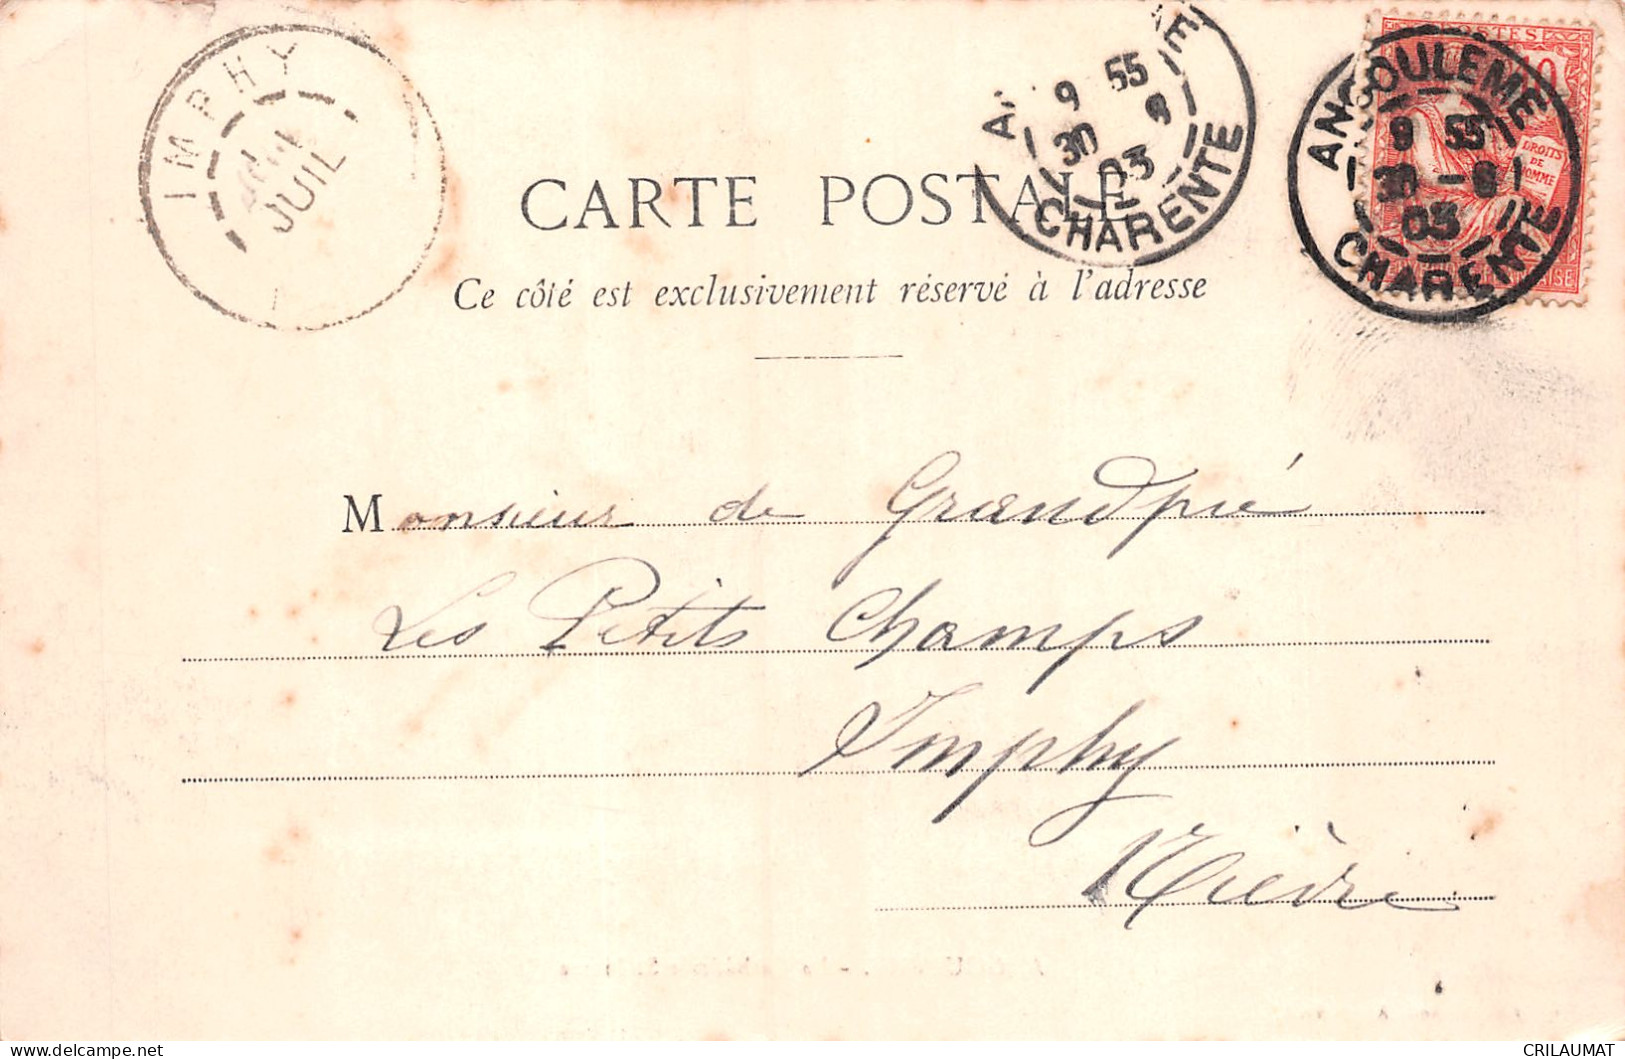 IMPHY
JUIL
9 55
30 9
03
CHARENTE
ANGOULEME
9 55
30 -6
03
CHARENTE
DROITS
DE
HOMME
CARTE POSTALE
Ce côté est exclusivement réservé à l'adresse
Monsieur de Grandpié
Les Petits Champs
Imphy
Nièvre
CRILAUMAT